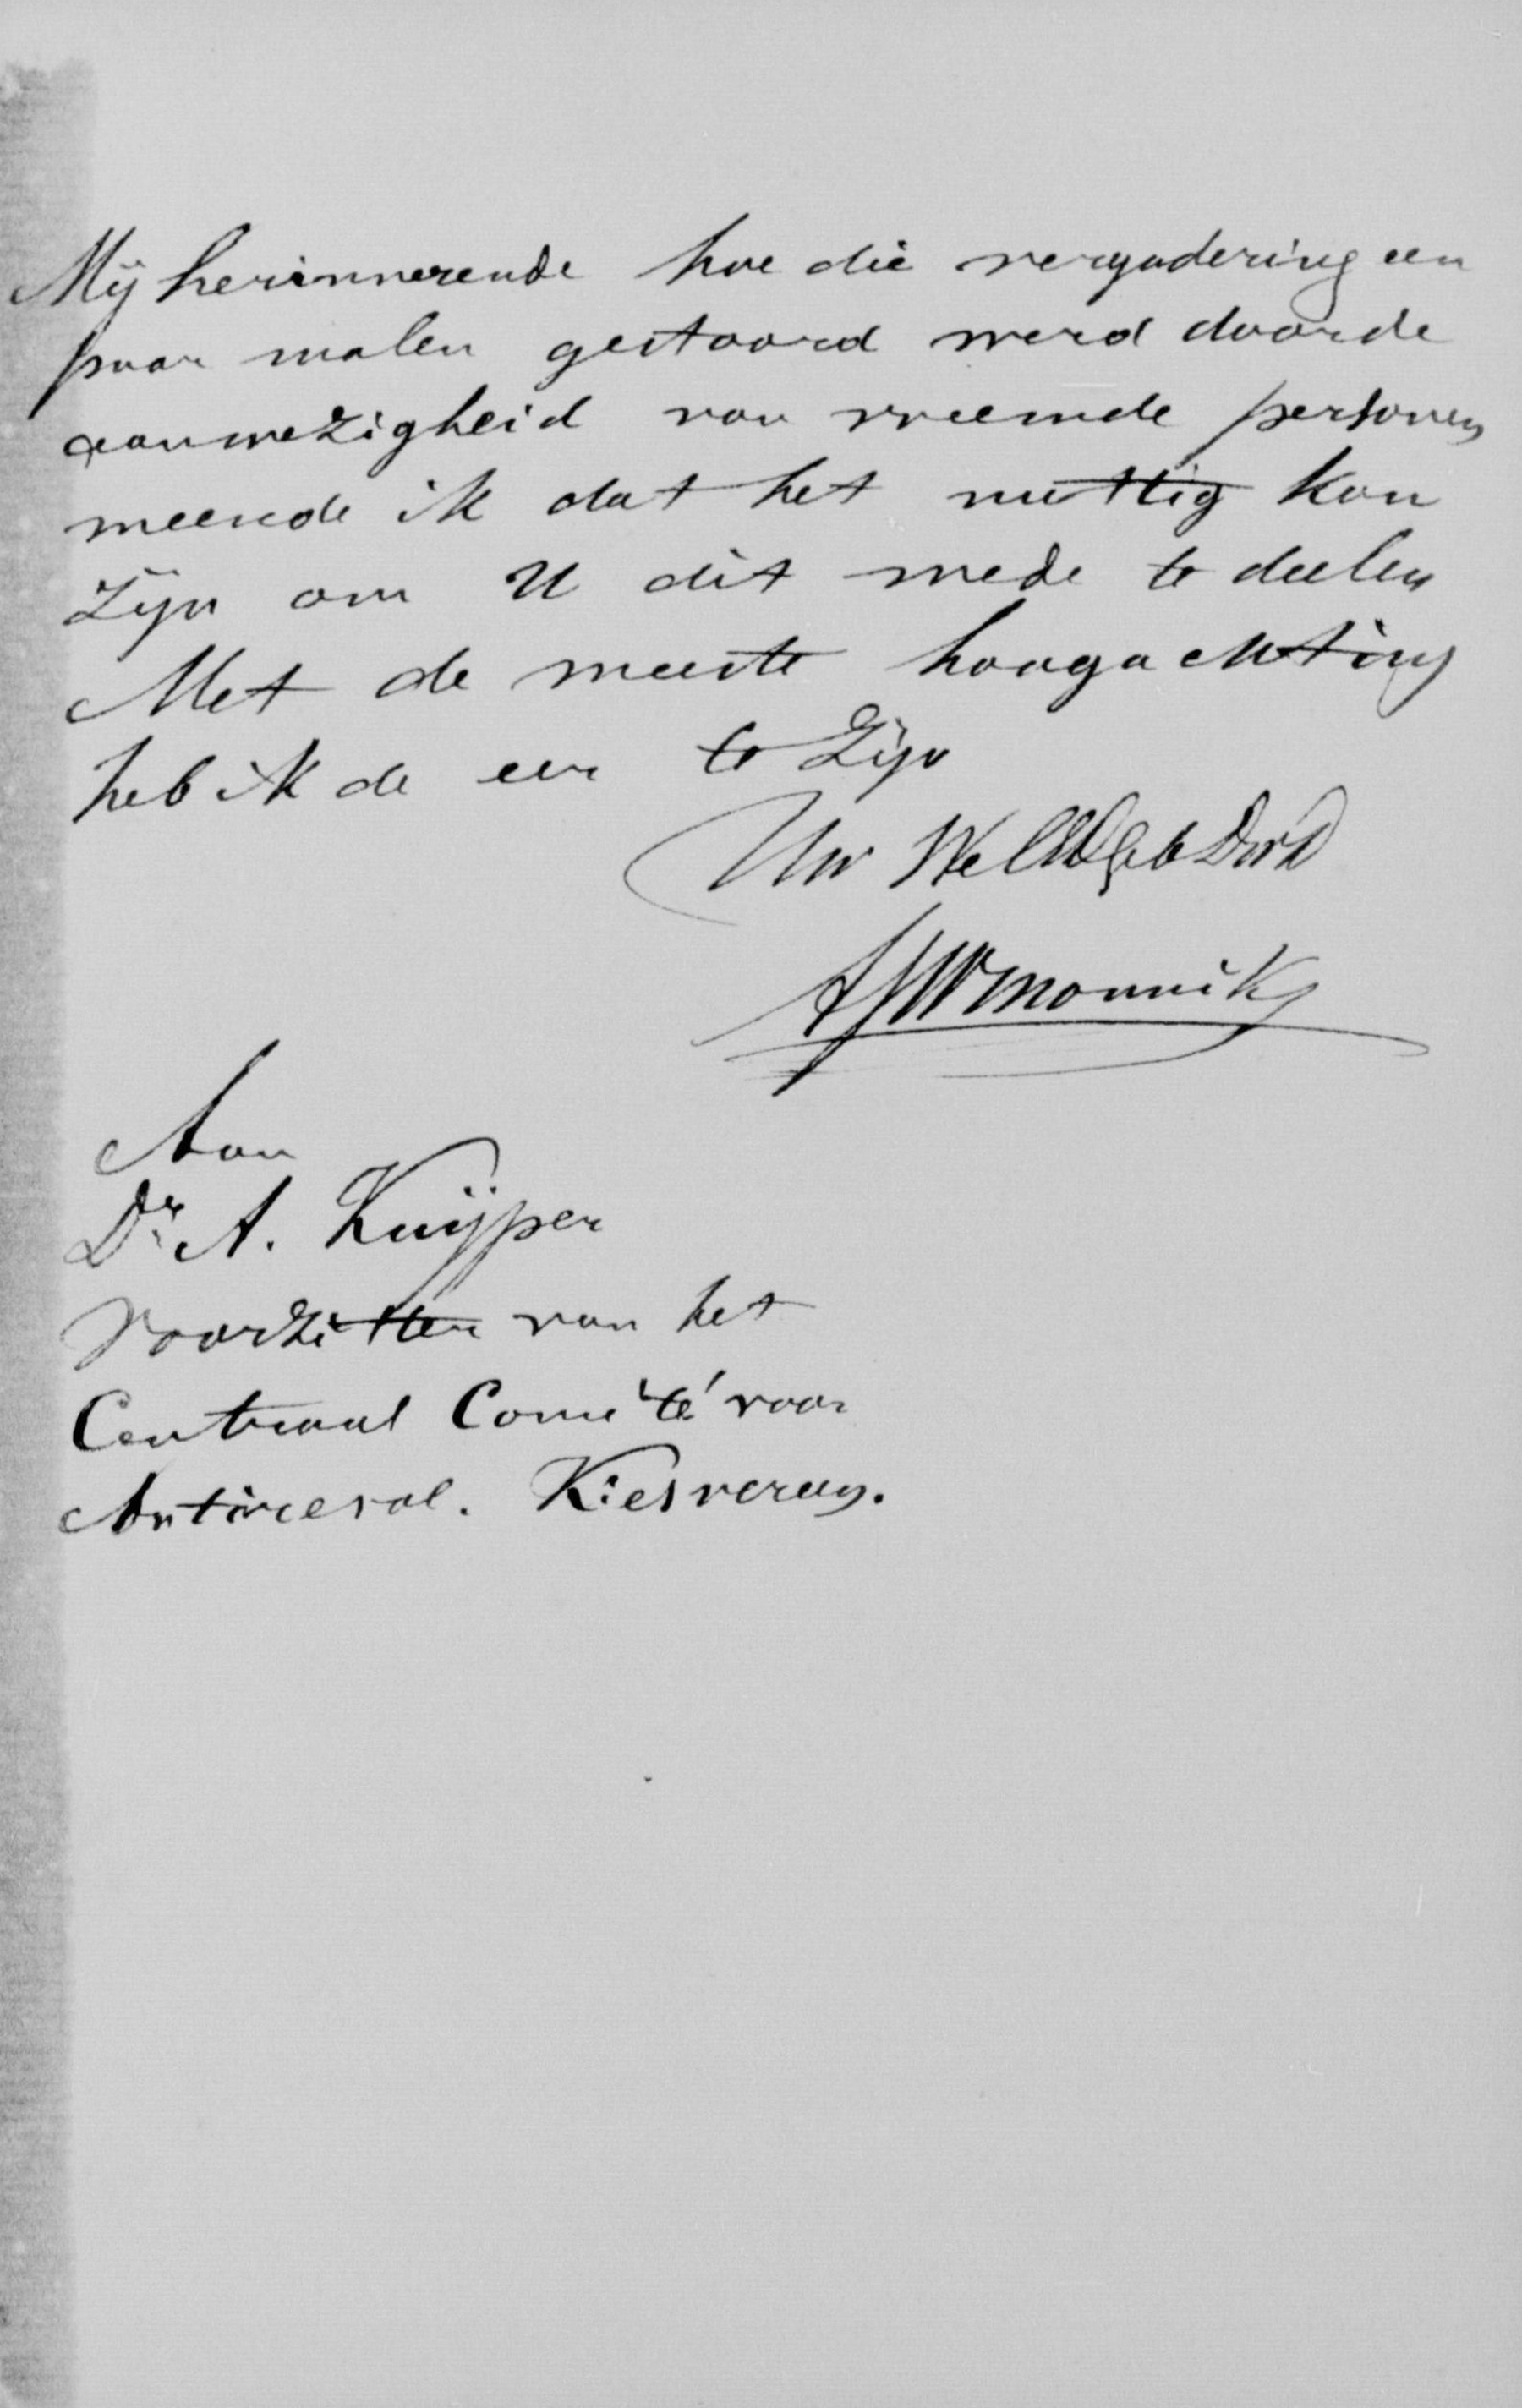 Mij herinnerende hoe die vergadering een
paar malen gestoord werd door de
aanwezigheid van vreemde personen
meende ik dat het nuttig kon
zijn om U dit mede te deelen
Met de meeste hoogachting
heb ik de eer te zijn
Uw WelEdGeb Dnr
Monnik
Aan
Dr. A. Kuijper
Voorzitter van het
Centraal Comité voor
Antirevol. Kiesvereen.